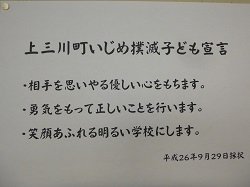 上三川町いじめ撲滅子ども宣言
・相手を思いやる優しい心をもちます。
・勇気をもって正しいことを行います。
・笑顔あふれる明るい学校にします。
平成26年9月29日採択